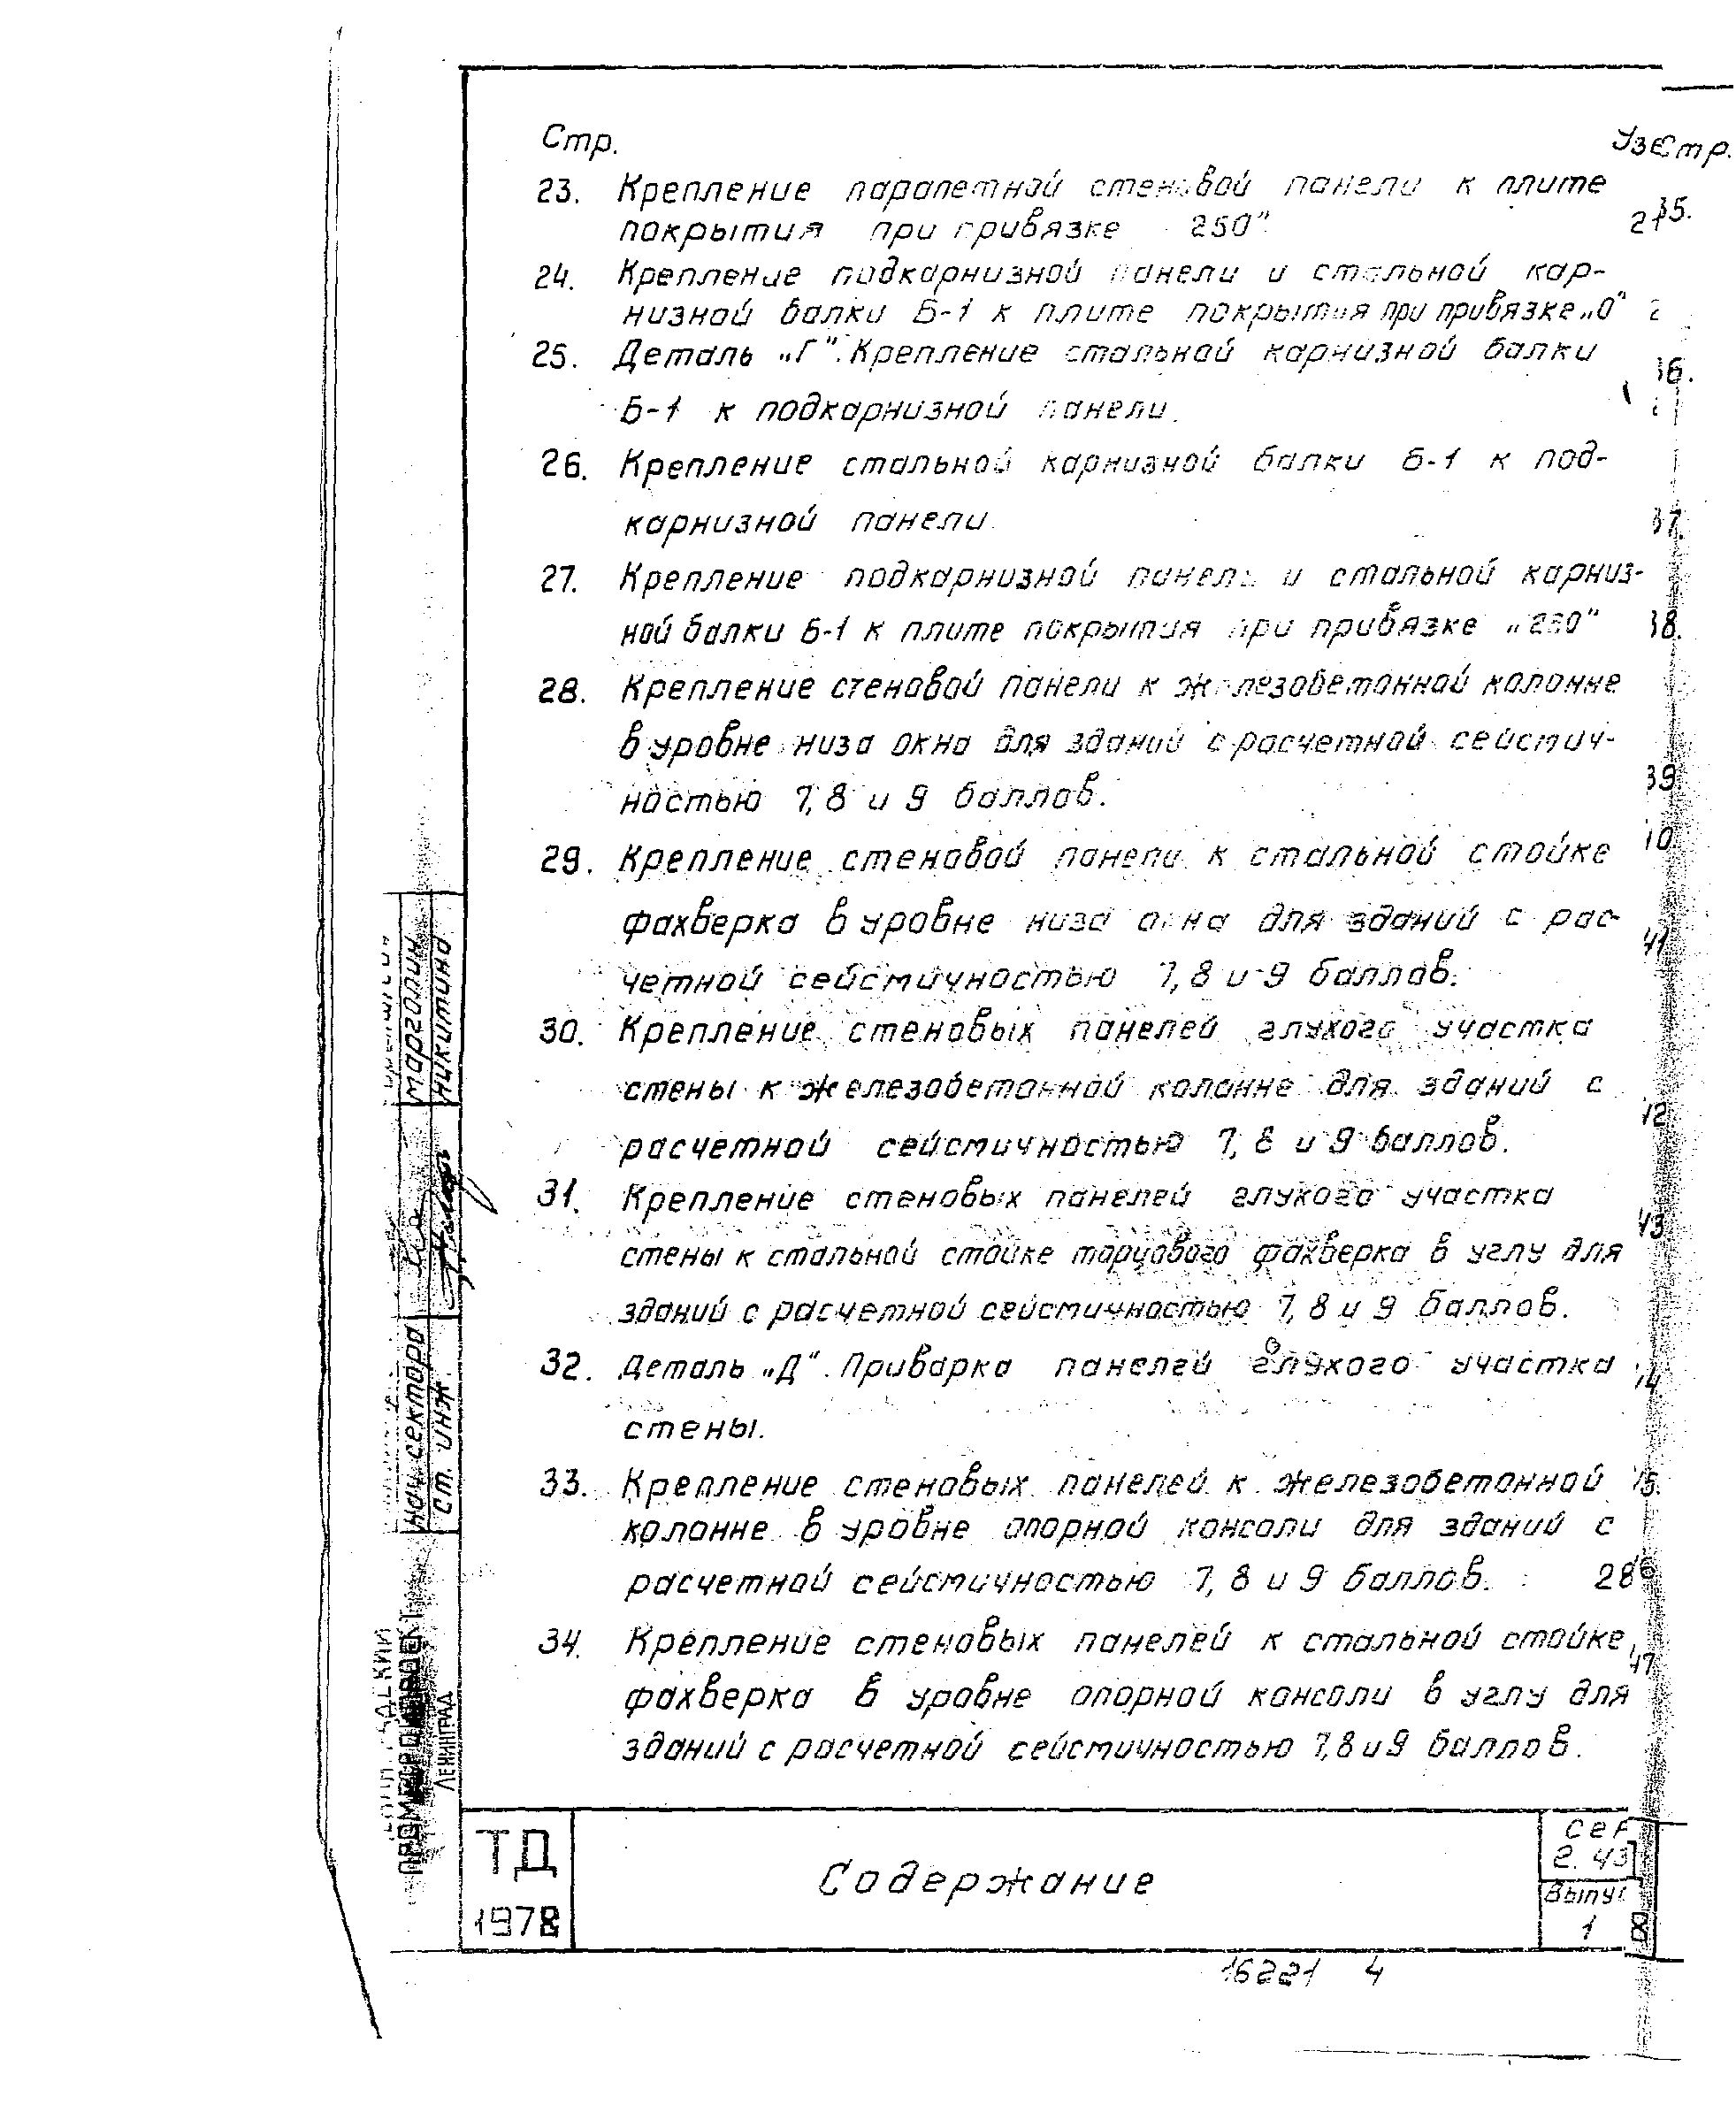 Стр.
23. Крепление парапетной стеновой панели к плите
покрытия при привязке 250"
24. Крепление подкарнизной панели и стальной кар-
низной балки Б-1 к плите покрытия при привязке „0"
25. Деталь „Г". Крепление стальной карнизной балки
Б-1 к подкарнизной панели.
26. Крепление стальной карнизной балки Б-1 к под-
карнизной панели.
27. Крепление подкарнизной панели и стальной карниз-
ной балки Б-1 к плите покрытия при привязке „250"
28. Крепление стеновой панели к железобетонной колонне
в уровне низа окна для зданий с расчетной сейсмич-
ностью 7, 8 и 9 баллов.
29. Крепление стеновой панели к стальной стойке
фахверка в уровне низа окна для зданий с рас-
четной сейсмичностью 7, 8 и 9 баллов.
30. Крепление стеновых панелей глухого участка
стены к железобетонной колонне для зданий с
расчетной сейсмичностью 7, 8 и 9 баллов.
31. Крепление стеновых панелей глухого участка
стены к стальной стойке торцового фахверка в углу для
зданий с расчетной сейсмичностью 7, 8 и 9 баллов.
32. Деталь „Д". Приварка панелей глухого участка
стены.
33. Крепление стеновых панелей к железобетонной
колонне в уровне опорной консоли для зданий с
расчетной сейсмичностью 7, 8 и 9 баллов. 28
34. Крепление стеновых панелей к стальной стойке
фахверка в уровне опорной консоли в углу для
зданий с расчетной сейсмичностью 7, 8 и 9 баллов.
Стр.
35.
36.
37.
38.
39.
41
42
43
47
Марголин
Никитина
нач. сектора
ст. инж.
ЛЕНИНГРАД
ТД
1978
Содержание
2.43
1
16221 4